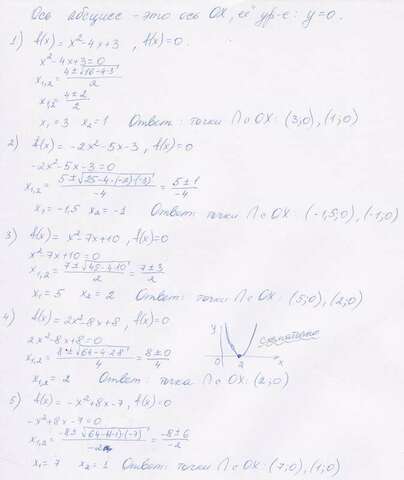 Ось абсцисс - это ось OX, её ур-е: y=0.
1) f(x) = x²-4x+3 , f(x)=0
x²-4x+3=0
x₁,₂ = (4±√(16-4·3))/2
x₁,₂ = (4±2)/2
x₁ = 3 x₂ = 1 Ответ: точки ∩ с OX: (3;0), (1;0)
2) f(x) = -2x²-5x-3 , f(x)=0
-2x²-5x-3=0
x₁,₂ = (5±√(25-4·(-2)·(-3)))/-4 = (5±1)/-4
x₁ = -1,5 x₂ = -1 Ответ: точки ∩ с OX: (-1,5;0), (-1;0)
3) f(x) = x²-7x+10 , f(x)=0
x²-7x+10=0
x₁,₂ = (7±√(45-4·10))/2 = (7±3)/2
x₁ = 5 x₂ = 2 Ответ: точки ∩ с OX: (5;0), (2;0)
4) f(x) = 2x²-8x+8 , f(x)=0
2x²-8x+8=0
x₁,₂ = (8±√(64-4·2·8))/4 = (8±0)/4
y
схематично
0 2 x
x₁,₂ = 2 Ответ: точка ∩ с OX: (2;0)
5) f(x) = -x²+8x-7 , f(x)=0
-x²+8x-7=0
x₁,₂ = (-8±√(64-4(-1)·(-7)))/-2 = (-8±6)/-2
x₁ = 7 x₂ = 1 Ответ: точки ∩ с OX: (7;0), (1;0)